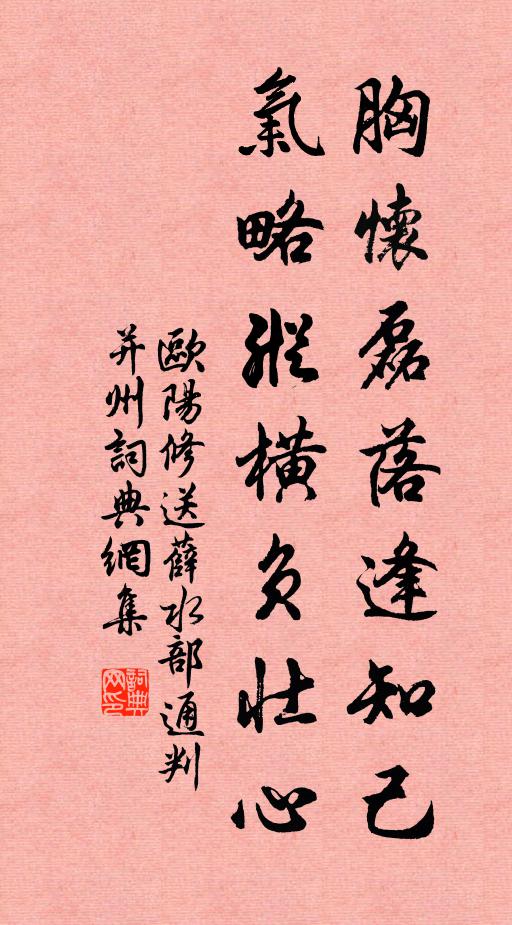 胸懷磊落逢知己
氣略縱橫負壯心
歐陽修送薛水部通判
并州詞典網集
詞典
网印